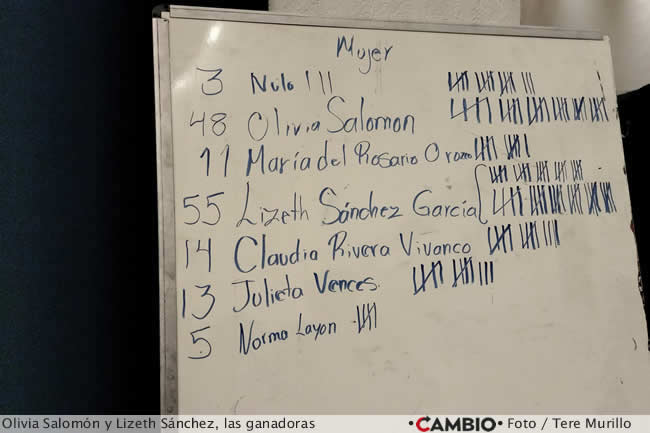 Mujer
3 Nulo III
48 Olivia Salomon
11 María del Rosario Orozco
55 Lizeth Sánchez García
14 Claudia Rivera Vivanco
13 Julieta Vences
5 Norma Layon
Olivia Salomón y Lizeth Sánchez, las ganadoras
•CAMBIO• Foto / Tere Murillo